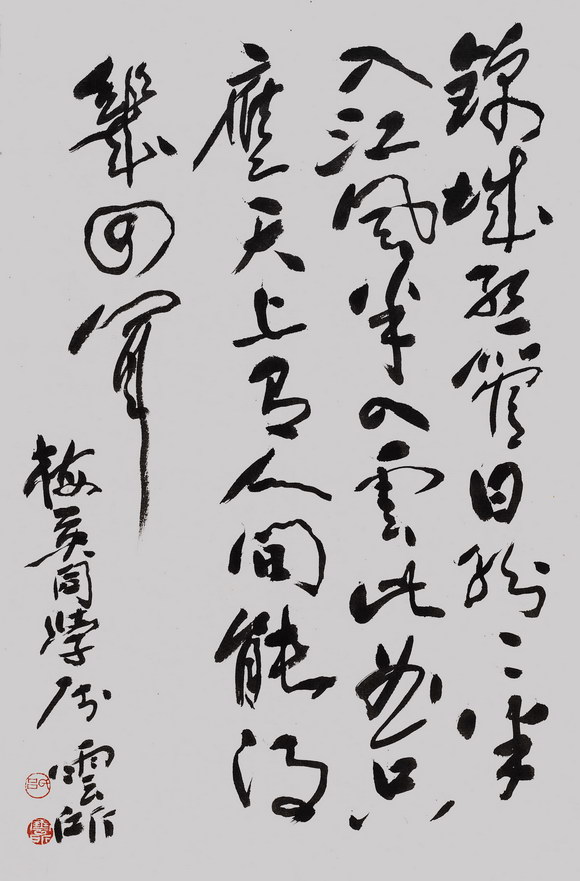 錦城丝管日紛〻半
入江風半入雲此曲只
應天上有人間能得
幾回聞
梅 同學
雲